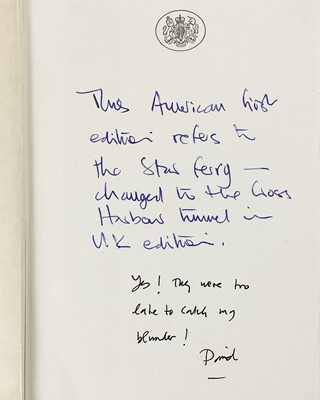 This American first
edition refers to
the Star ferry —
changed to the Cross
Harbour tunnel in
U.K edition.
Yes! They were too
late to catch my
blunder!
David